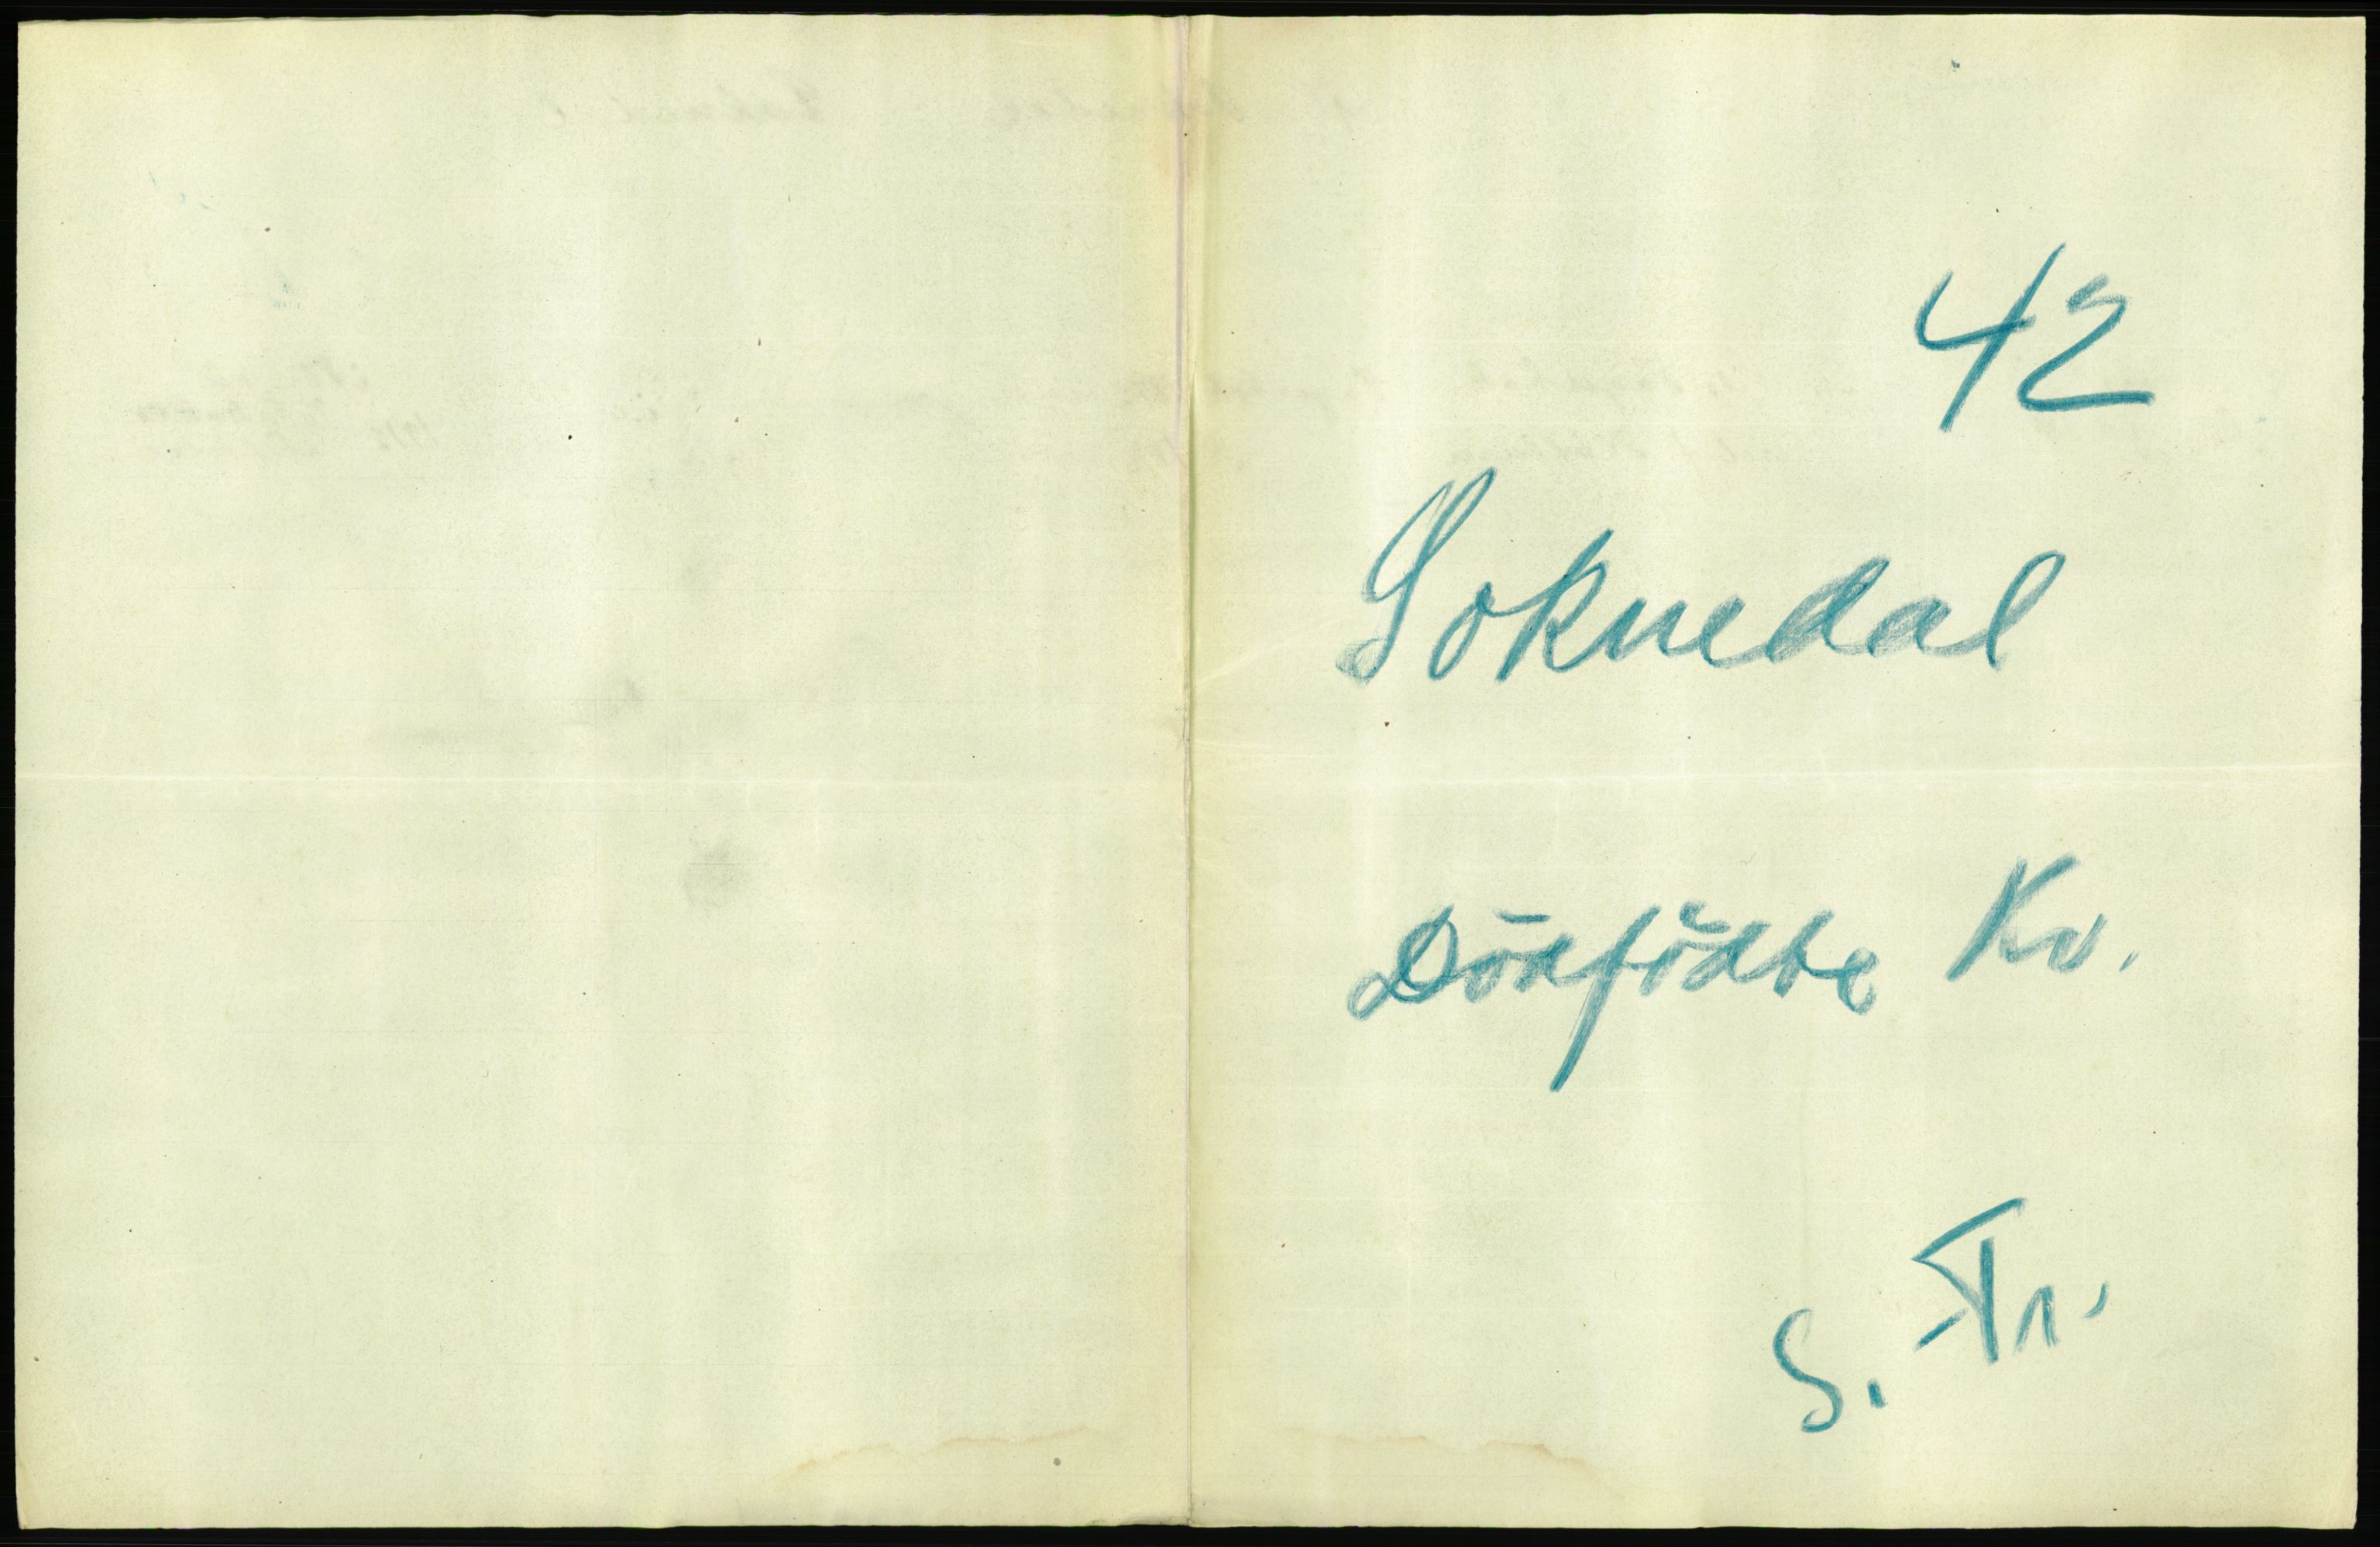 42
Soknedal
Dödfödte Kv.
S. Tr.